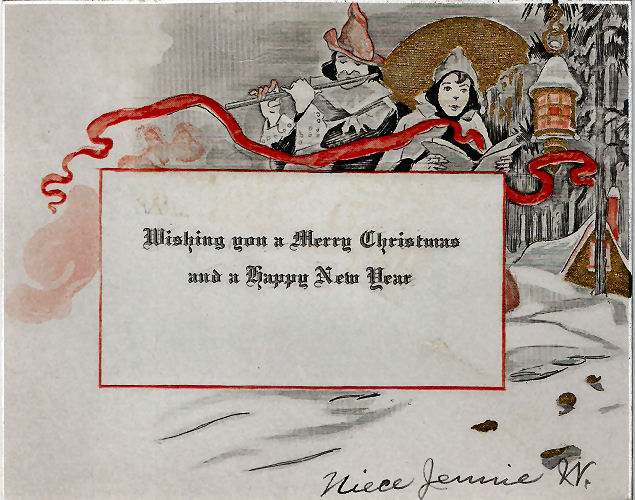 Wishing you a Merry Christmas
and a Happy New Year
Niece Jennie W.